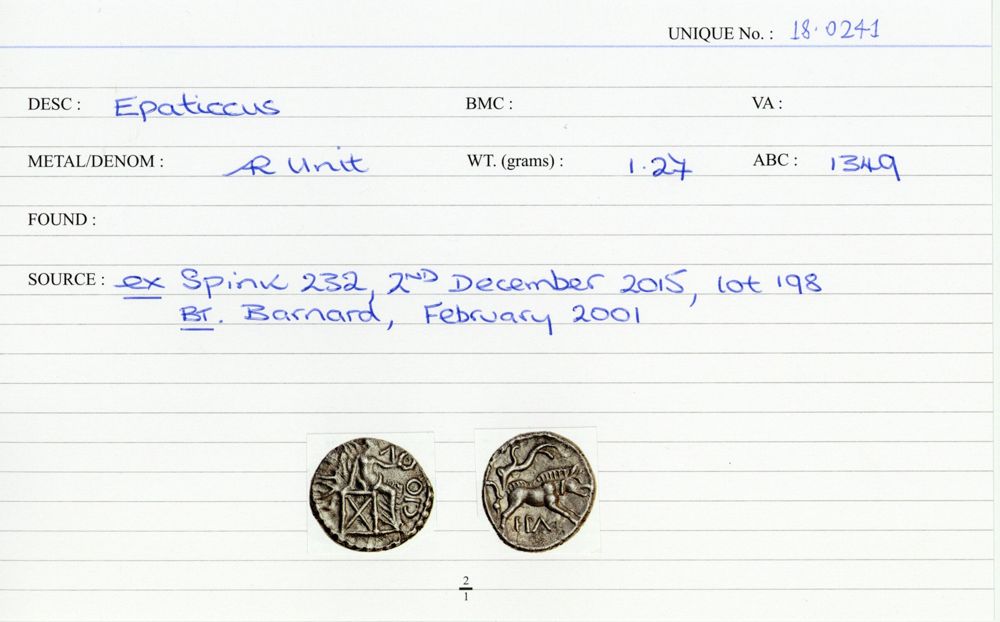 UNIQUE No. : 18·0241
DESC : Epaticcus BMC : VA :
METAL/DENOM : AR Unit WT. (grams) : 1·27 ABC : 1349
FOUND :
SOURCE : ex Spink 232, 2ND December 2015, lot 198
BT. Barnard, February 2001
2
1